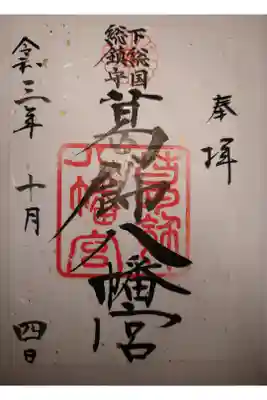 奉拝
下総国
総鎮守
葛飾八幡宮
葛飾
八幡宮
令和三年十月四日